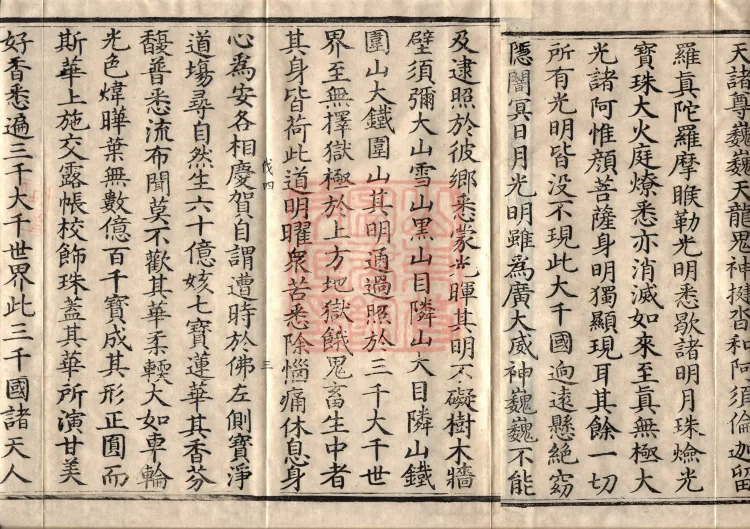 天諸尊巍巍天龍鬼神揵沓和阿須倫迦留
羅真陀羅摩睺勒光明悉歇諸明月珠爓光
寶珠大火庭燎悉亦消滅如來至真無極大
光諸阿惟顏菩薩身明獨顯現耳其餘一切
所有光明皆没不現此大千國逈遠懸絕窈
隱闇冥日月光明雖為廣大威神巍巍不能
及逮照於彼鄉悉蒙光暉其明不礙樹木牆
壁須彌大山雪山黑山目隣山大目隣山鐵
圍山大鐵圍山其明通過照於三千大千世
界至無擇獄極於上方地獄餓鬼畜生中者
其身皆荷此道明曜衆苦悉除惱痛休息身
伐四 三
心為安各相慶賀自謂遭時於佛左側寶淨
道場尋自然生六十億姟七寶蓮華其香芬
馥普悉流布聞莫不歡其華柔輭大如車輪
光色煒曄葉無數億百千寶成其形正圓而
斯華上施交露帳校飾珠蓋其華所演甘美
好香悉遍三千大千世界此三千國諸天人